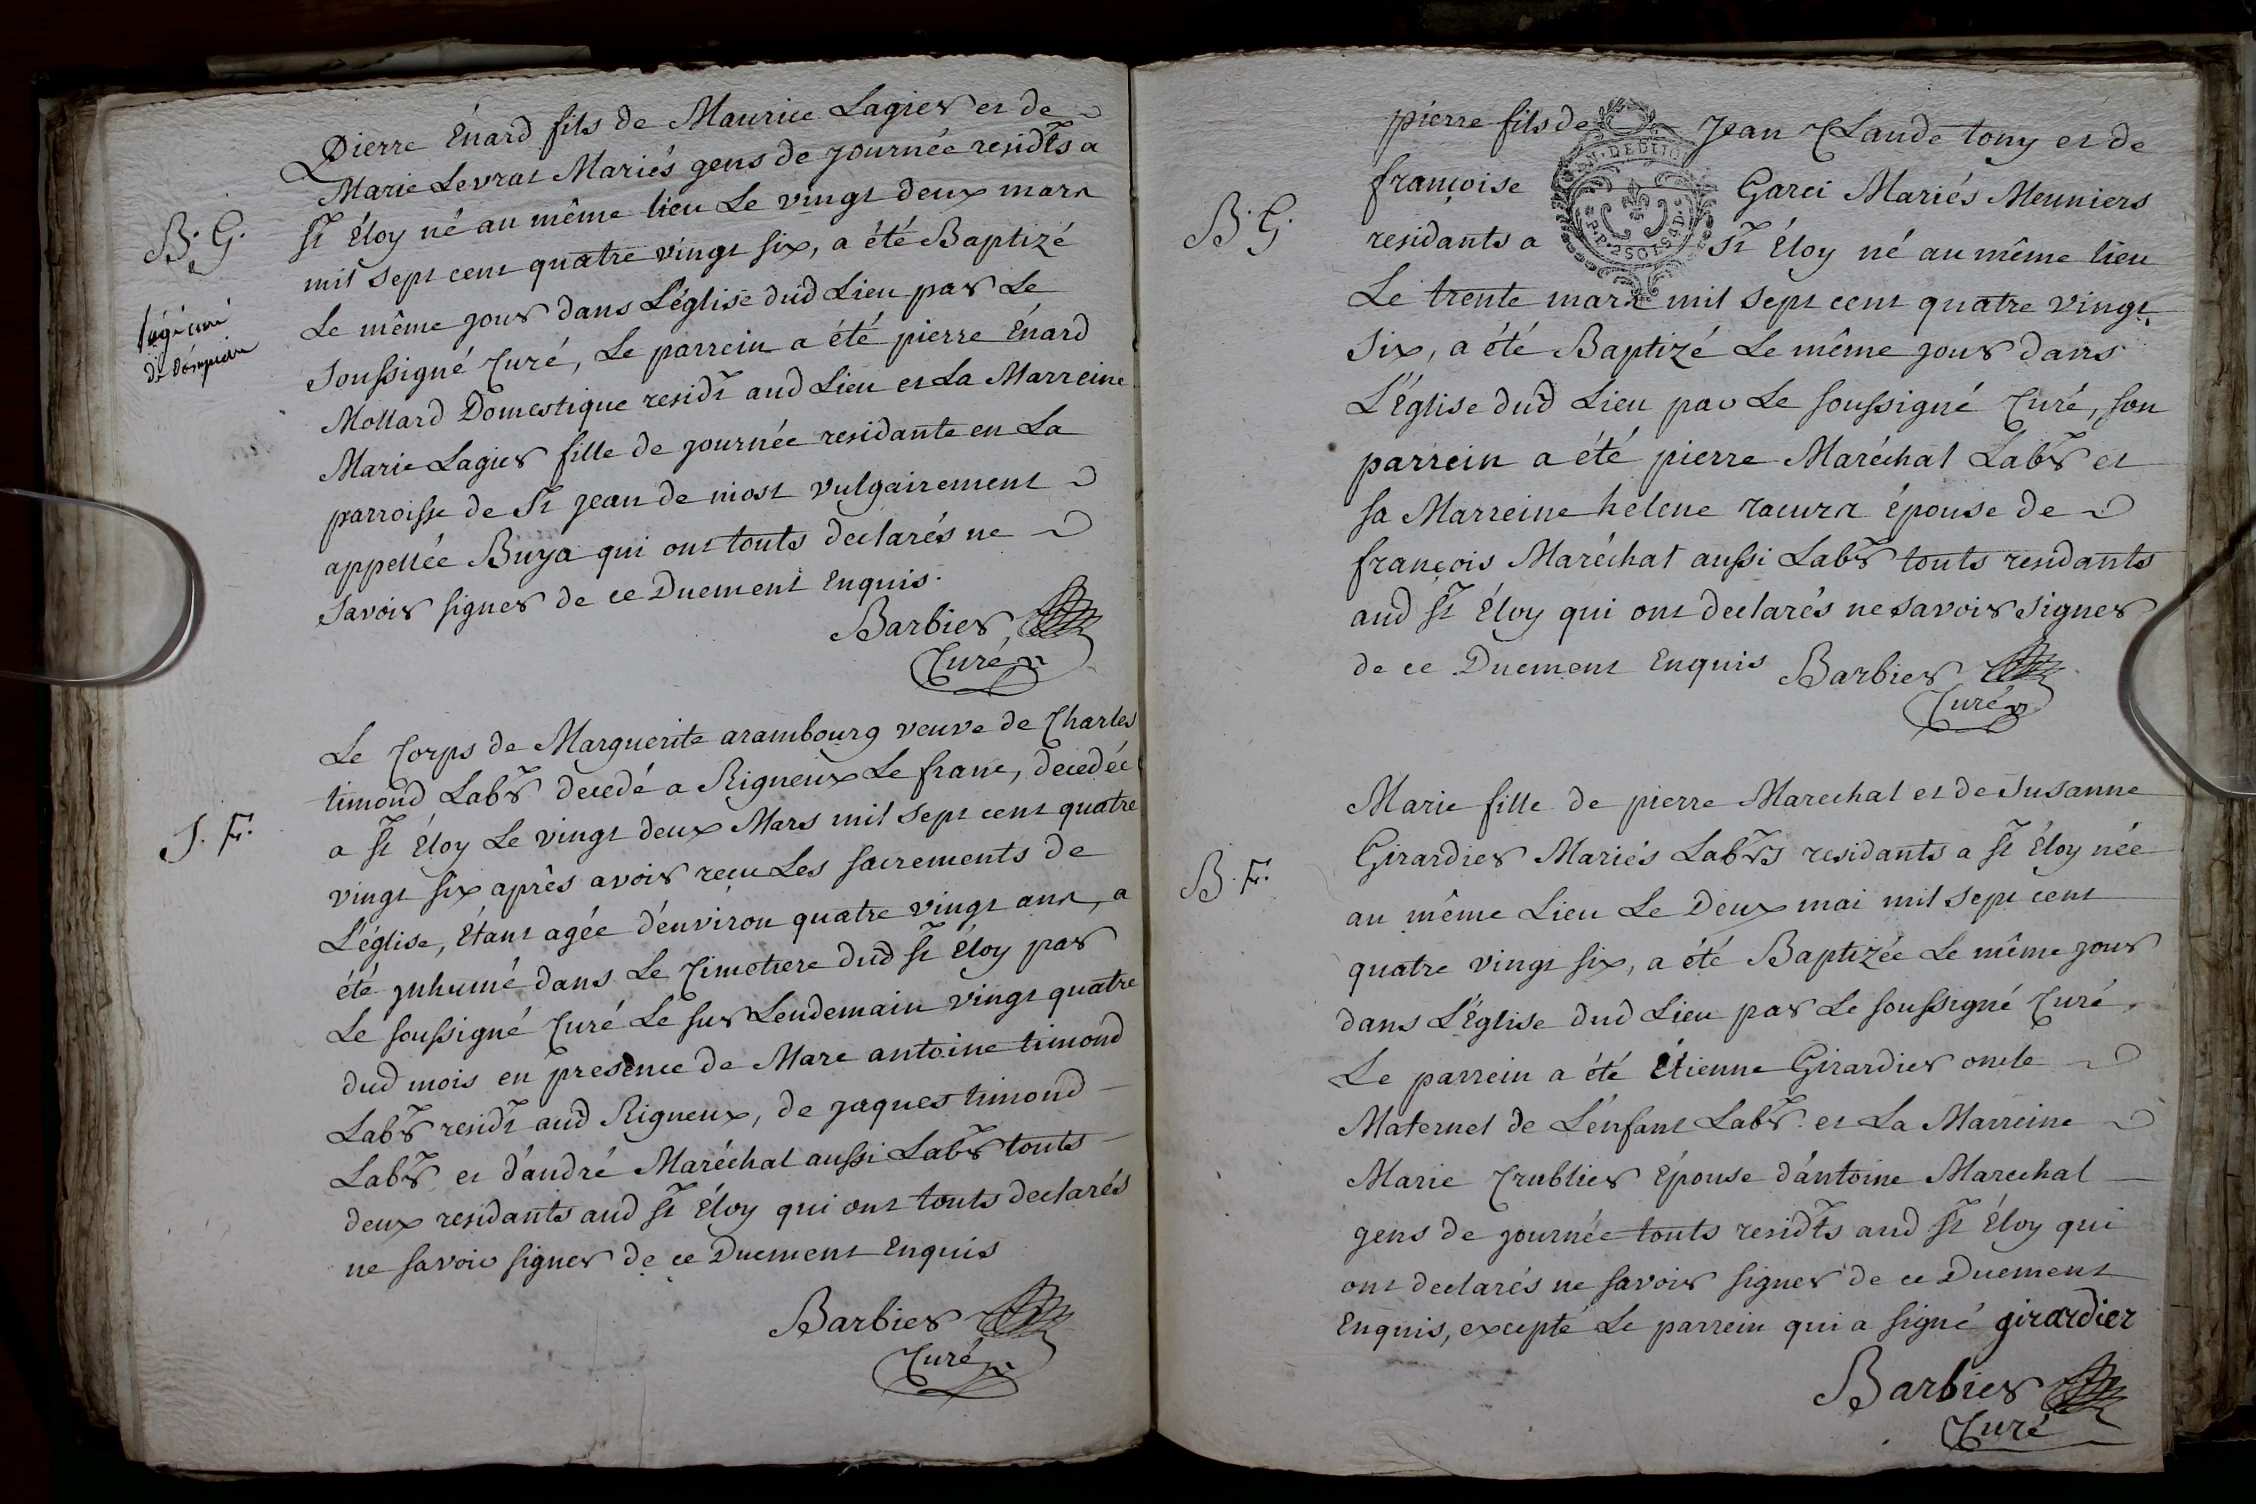 Pierre Énard fils de Maurice Lagier et de
Marie Levrat Mariés gens de journée residts a
B. G.
St Éloy né au même lieu Le vingt deux mars
mil sept cent quatre vingt six, a été Baptizé
Le même jour dans L'église dud Lieu par Le
soussigné Curé, Le parrein a été pierre Énard
Mollard Domestique residt aud Lieu et La Marreine
Marie Lagier fille de journée residante en La
parroisse de St jean de niost vulgairement
appellée Buya qui ont touts declarés ne
savoir signer de ce Duement Enquis.
Barbier
Curé
Le Corps de Marguerite arambourg veuve de Charles
timond Labr decedé a Rigneux Le franc, decedée
S. F.
a St Éloy Le vingt deux Mars mil sept cent quatre
vingt six après avoir reçu Les sacrements de
L'église, Étant agée d'environ quatre vingt ans, a
été inhumé dans Le Cimetiere dud St Éloy par
Le soussigné Curé Le sur Lendemain vingt quatre
dud mois en presence de Marc antoine timond
Labr residt aud Rigneux, de jaques timond
Labr et d'andré Maréchal aussi Labr touts
deux residants aud St Éloy qui ont touts declarés
ne savoir signer de ce Duement Enquis
Barbier
Curé
pierre fils de Jean Claude tony et de
françoise Garci Mariés Meuniers
B. G.
residants a St Éloy né au même lieu
Le trente mars mil sept cent quatre vingt
six, a été Baptizé Le même jour dans
L'Église dud Lieu par Le soussigné Curé, son
parrein a été pierre Maréchal Labr et
sa Marreine helene épouse de
françois Maréchal aussi Labr touts residants
aud St Éloy qui ont declarés ne savoir signer
de ce Duement Enquis Barbier
Curé
Marie fille de pierre Marechal et de Susanne
Girardier Mariés Labrs residants a St Éloy née
B. F.
au même Lieu Le Deux mai mil sept cent
quatre vingt six, a été Baptizée Le même jour
dans L'Église dud Lieu par Le soussigné Curé,
Le parrein a été Étienne Girardier oncle
Maternel de L'énfant Labr. et La Marreine
Marie Crublier Épouse d'antoine Marechal
gens de journée touts residts aud St Éloy qui
ont declarés ne savoir signer de ce Duement
Enquis, excepté Le parrein qui a signé girardier
Barbier
Curé